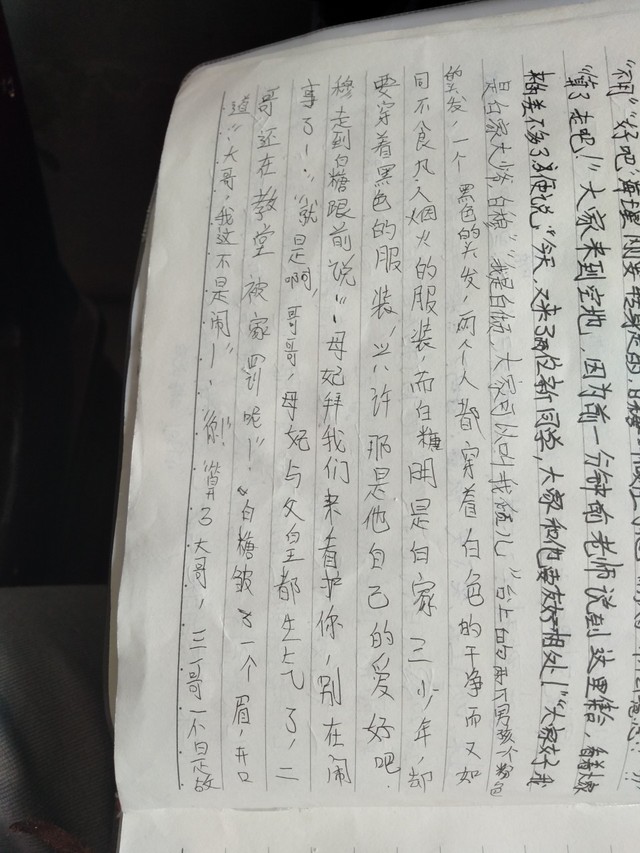 "好吧"
"算了走吧!"大家来到空地,因为前一分钟前老师说到这里集合,
差不多了便说:"今天,又来了两位新同学,大家和他要友好相处!""大家好我
是白家大 白糖""我是白 大家可以叫我 儿"台上的两个男孩个粉色
的头发,一个黑色的头发,两个人都穿着白色的干净而又如
同不食凡人烟火的服装,而白糖明是白家三少年,却
要穿着黑色的服装,兴许那是他自己的爱好吧.
穆走到白糖跟前说:"母妃拜我们来看护你,别在闹
事了!","就是啊,哥哥,母妃与父皇都生气了,二
哥还在教堂被家罚呢!"白糖皱了一个眉,开口
道:"大哥,我这不是闹!","你!""算了大哥,三哥一不是故